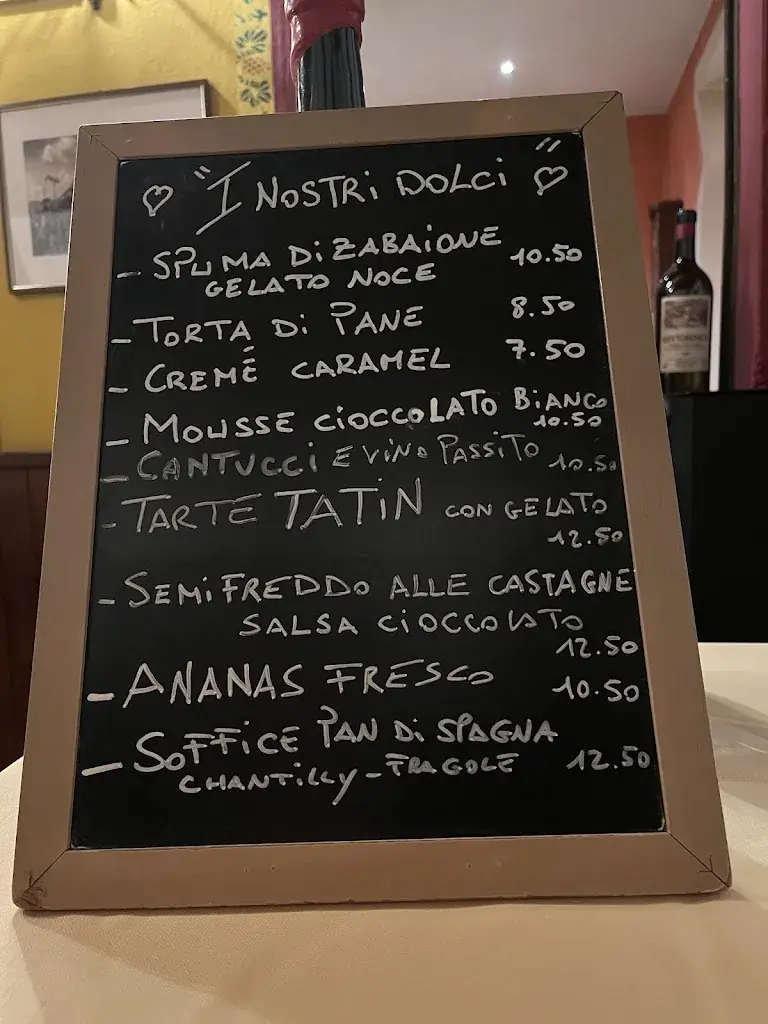 "I NOSTRI DOLCI"
- SPUMA DI ZABAIONE 10.50
GELATO NOCE
- TORTA DI PANE 8.50
- CREMÉ CARAMEL 7.50
- MOUSSE CIOCCOLATO BIANCO
10.50
- CANTUCCI E VINO PASSITO 10.50
- TARTE TATIN CON GELATO
12.50
- SEMIFREDDO ALLE CASTAGNE
SALSA CIOCCOLATO
12.50
- ANANAS FRESCO 10.50
- SOFFICE PAN DI SPAGNA
CHANTILLY - FRAGOLE 12.50